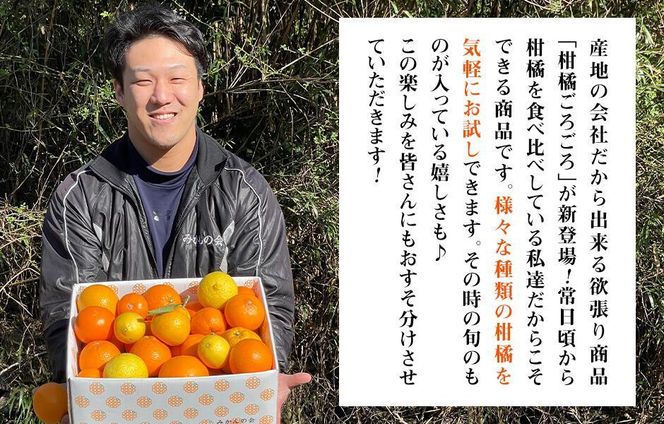 産地の会社だから出来る欲張り商品
「柑橘ごろごろ」が新登場！常日頃から
柑橘を食べ比べしている私達だからこそ
できる商品です。様々な種類の柑橘を
気軽にお試しできます。その時の旬のも
のが入っている嬉しさも♪
この楽しみを皆さんにもおすそ分けさせ
ていただきます！
みかんの会
みかんの会